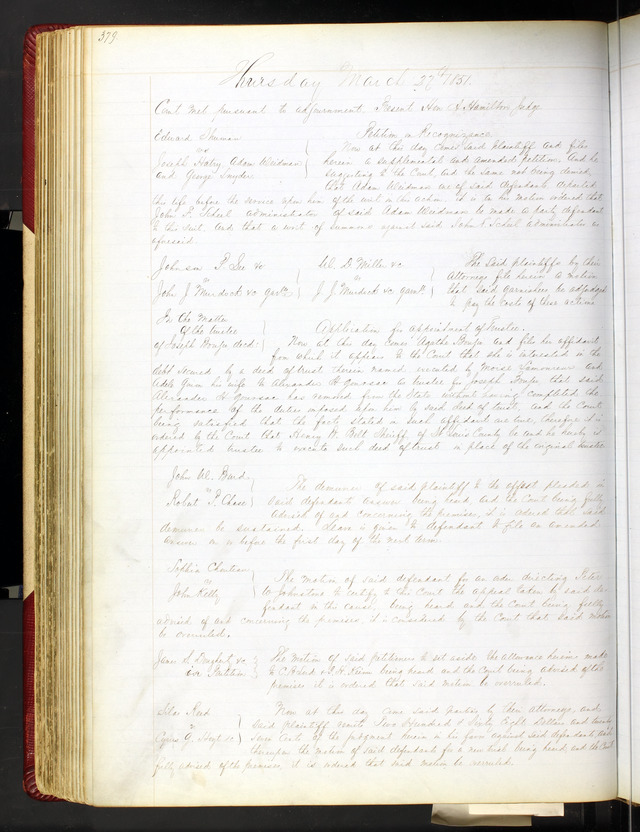 379
Thursday March 27th 1851.
Court met pursuant to adjournment. Present Hon. A Hamilton Judge
Edward Thuman
vs
Joseph Haley Adam Weidman
and George Snyder
Petition on Recognizance
Now at this day comes said plaintiff and files
herein a supplemental and amended petition. And he
suggesting to the Court, and the same not being denied,
that Adam Weidman one of said defendants departed
this life before the service upon him of the writ in this action. It is on his motion ordered that
John P. Scheel administrator of said Adam Weidman be made a party defendant
to this suit. And that a writ of summons against said John P. Scheel Administrator as
aforesaid.
Johnson P. Lee &c
vs
John J. Murdock &c garn.
W. D. Miller &c
vs
J. J. Murdock &c garn.
The said plaintiffs by their
Attorneys file herein a motion
that said garnishee be adjudged
to pay the costs of these actions
In the Matter
of the trustee
of Joseph decd.
Application for appointment of Trustee.
Now at this day comes Agatha and files her affidavit
from which it appears to the Court that she is interested in the
debt secured by a deed of trust herein named executed by
Adele his wife to Alexander H. as trustee for Joseph that said
Alexander H. has removed from the State without having completed the
performance of the duties imposed upon him by said deed of trust, and the Court
being satisfied that the facts stated in such affidavit are true, therefore it is
ordered by the Court that Henry W. Belt Sheriff of St Louis County be and he hereby is
appointed trustee to execute such deed of trust in place of the original trustee
John W. Burd
vs
Robert P. Chase
The demurrer of said plaintiff to the offset pleaded in
said defendants answer being heard and the Court being fully
advised of and concerning the premises, it is ordered that said
demurrer be sustained. Leave is given to defendant to file an amended
answer on or before the first day of the next term.
Sophia Chouteau
vs
John Kelly
The motion of said defendant for an order directing Peter
W Johnstone to certify to the Court the appeal taken by said de-
fendant in this cause, being heard and the Court being fully
advised of and concerning the premises, it is considered by the Court that said motion
be overruled.
James S. Dougherty &c
Petition
The motion of said petitioners to set aside the allowance herein made
to C. & being heard and the Court being advised of the
premises it is ordered that said motion be overruled.
Silas Reed
vs
Cyrus A. Hoyt &c
Now at this day come said parties by their attorneys, and
said plaintiff remits Two Hundred & Sixty Eight Dollars and twenty
cents of the judgment herein in his favor against said defendants, and
thereupon the motion of said defendants for a new trial being heard, and the Court
fully advised of the premises, it is ordered that said motion be overruled.